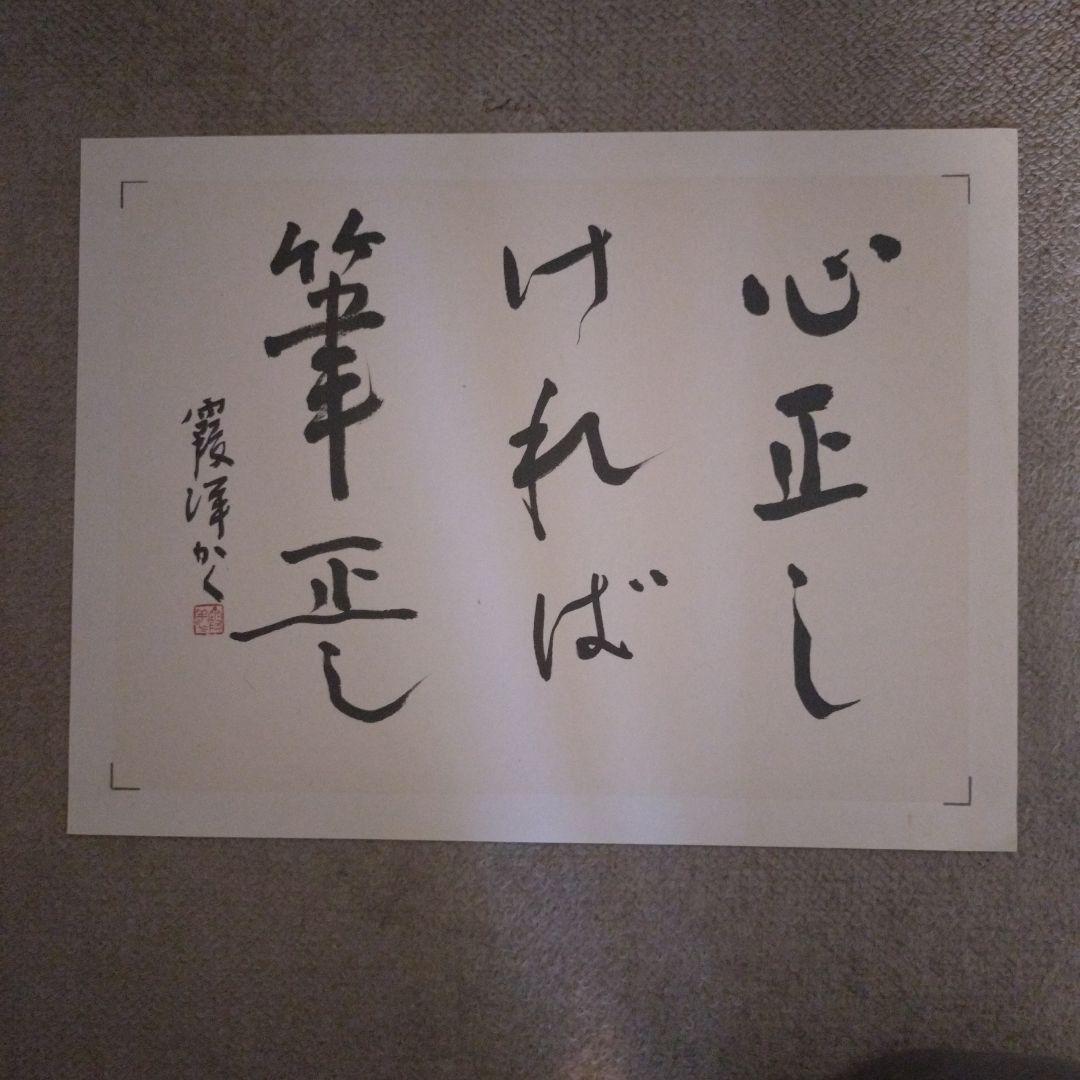 心正し
ければ
筆正し
霞洋かく